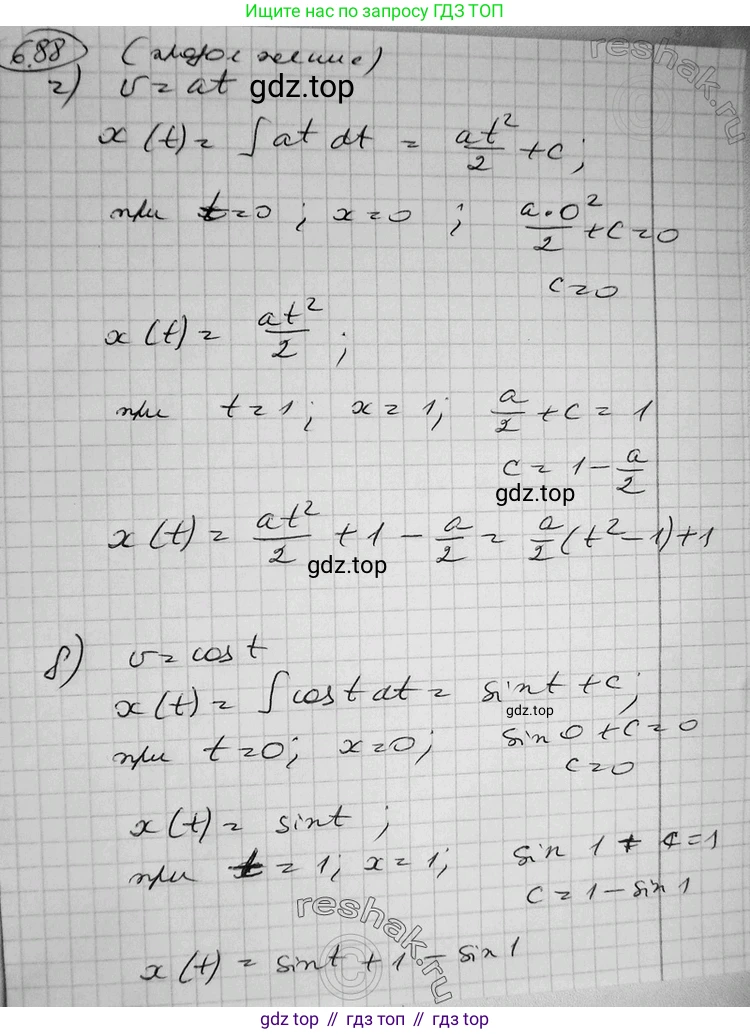 Ищите нас по запросу ГДЗ ТОП
6.88 (продолжение)
г) v = at
gdz.top
x(t) = ∫ at dt = at²/2 + c;
при t=0; x=0; a·0²/2 + c = 0
c=0
x(t) = at²/2;
при t=1; x=1; a/2 + c = 1
c = 1 - a/2
gdz.top
x(t) = at²/2 + 1 - a/2 = a/2(t²-1)+1
gdz.top
v = cos t
x(t) = ∫ cos t dt = sin t + c;
gdz.top
при t=0; x=0; sin 0 + c = 0
c=0
x(t) = sin t;
при t=1; x=1; sin 1 + c = 1
c = 1 - sin 1
x(t) = sin t + 1 - sin 1
reshak.ru
reshak.ru
gdz.top // gdz.top // gdz.top